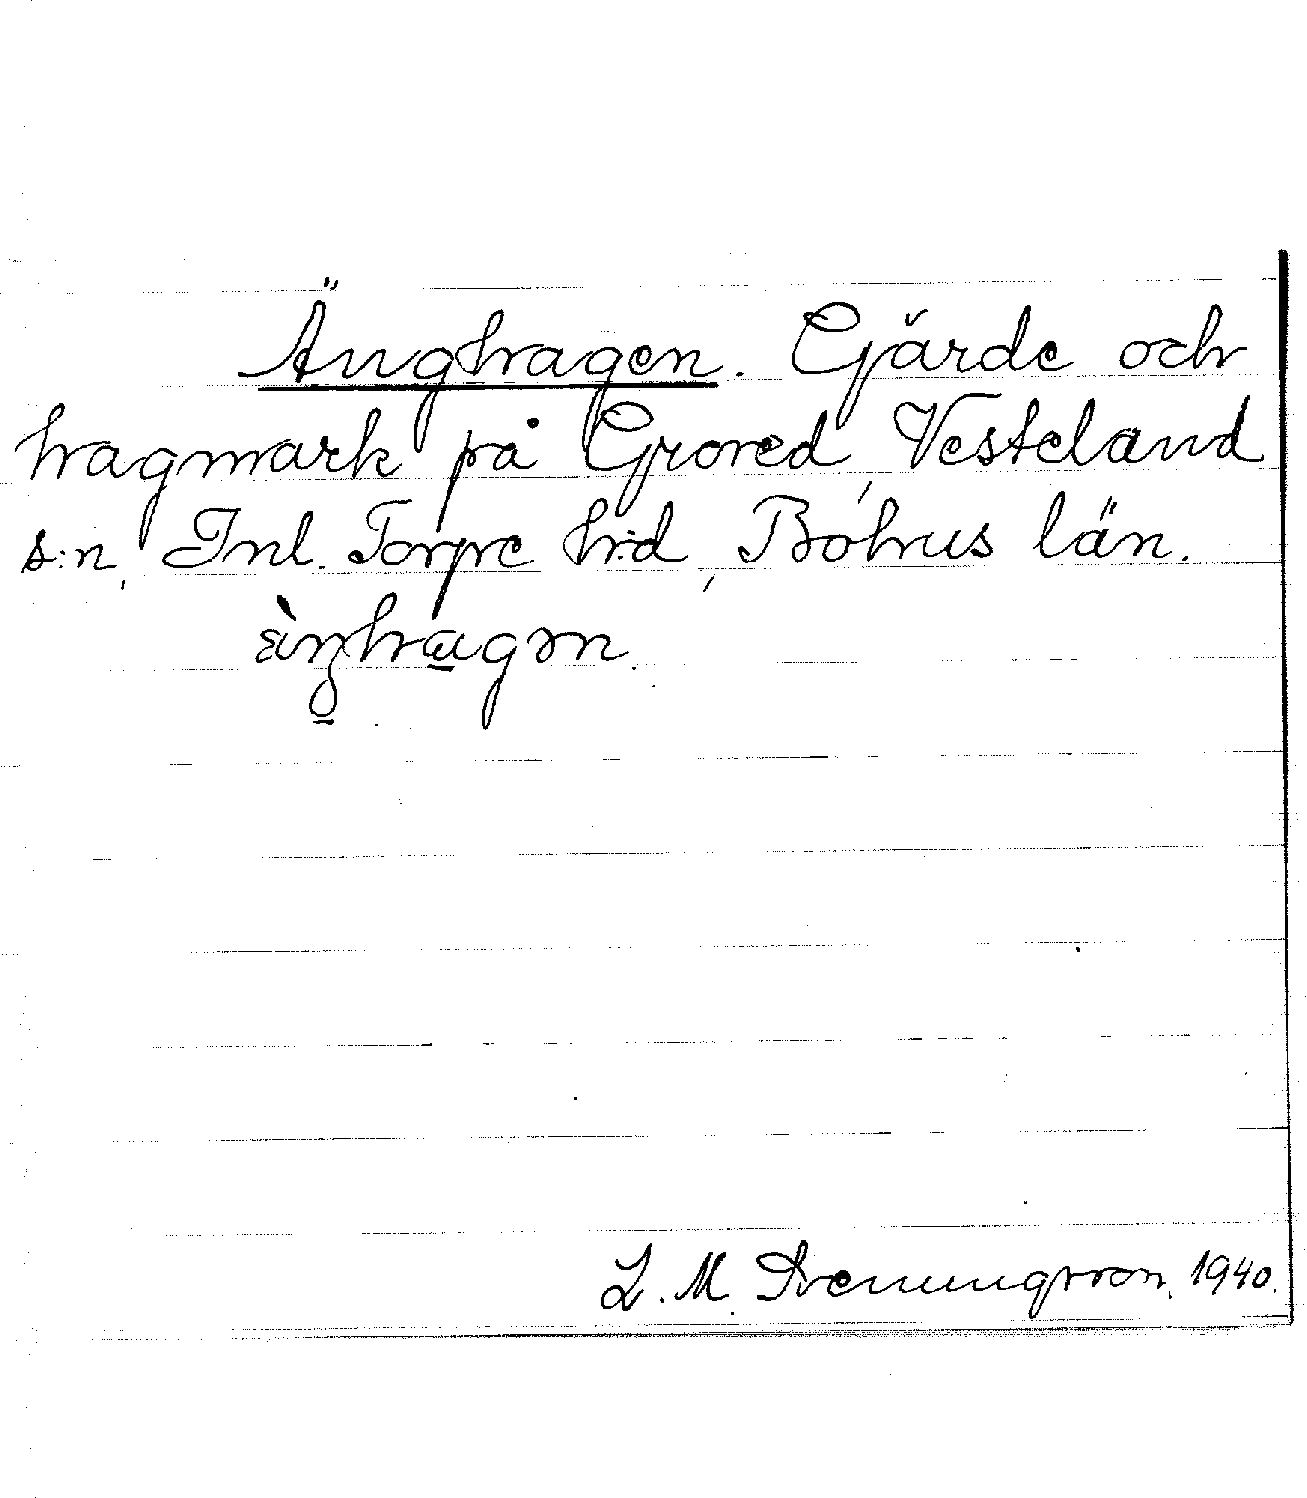 Änghagen. Gjärde och
hagmark på Grored, Vesteland
s:n, Inl. Torpe h:d, Bohus län.
L. M. Svenungsson, 1940.